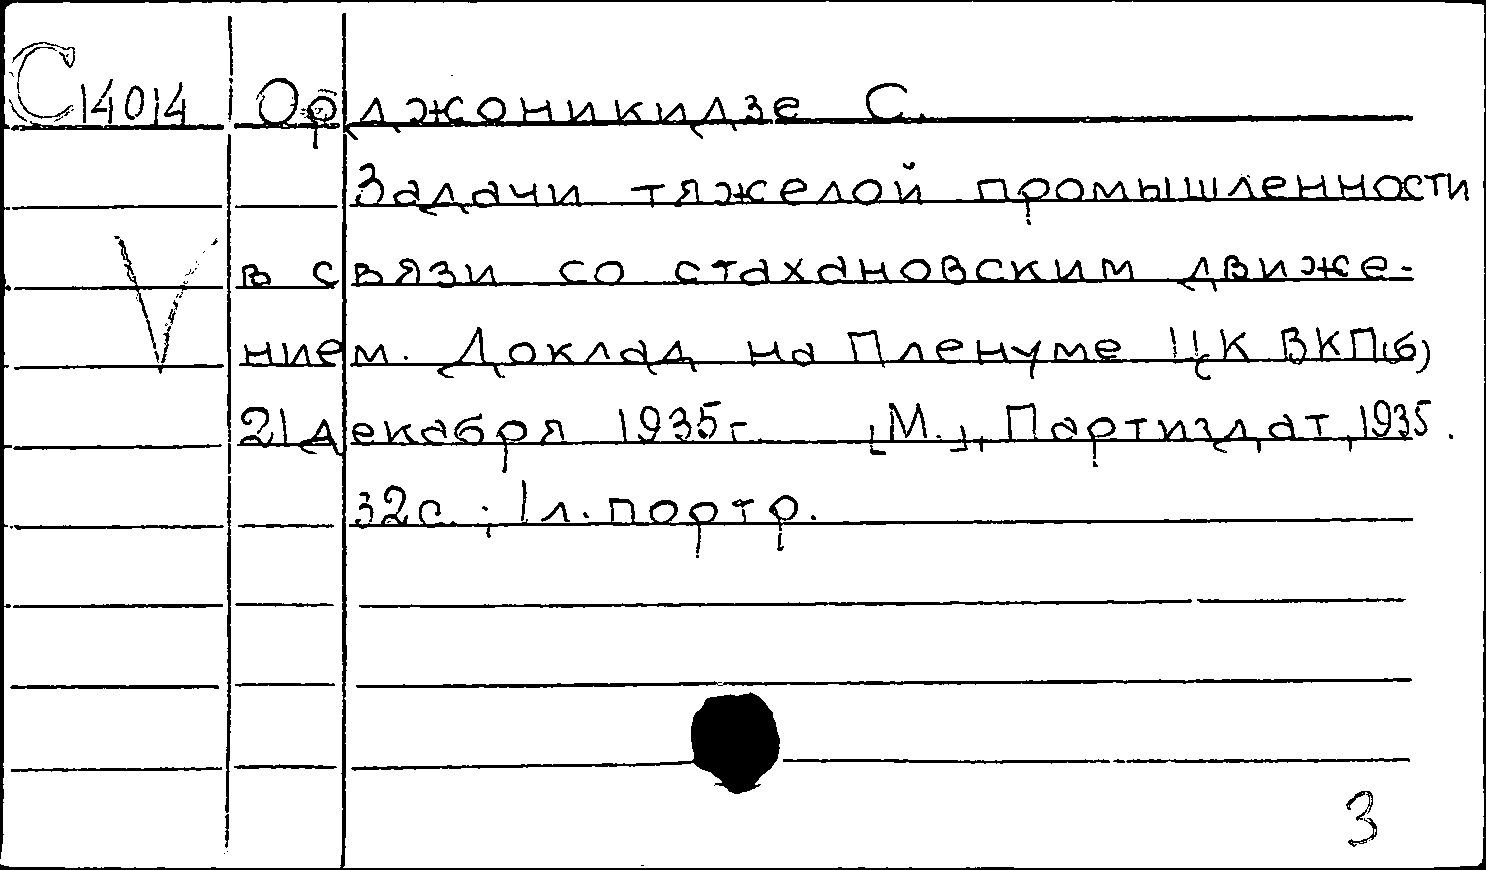 С14014 Орджоникидзе С.
Задачи тяжелой промышленности
в связи со стахановским движе-
нием. Доклад на Пленуме ЦК ВКП(б)
21 декабря 1935г. [М.], Партиздат, 1935.
32с.; 1л. портр.
3